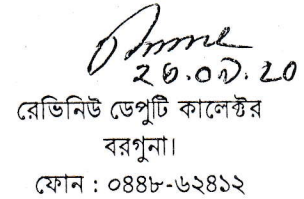 ২৩.০৯.২০
রেভিনিউ ডেপুটি কালেক্টর
বরগুনা।
ফোন : ০৪৪৮-৬২৪১২